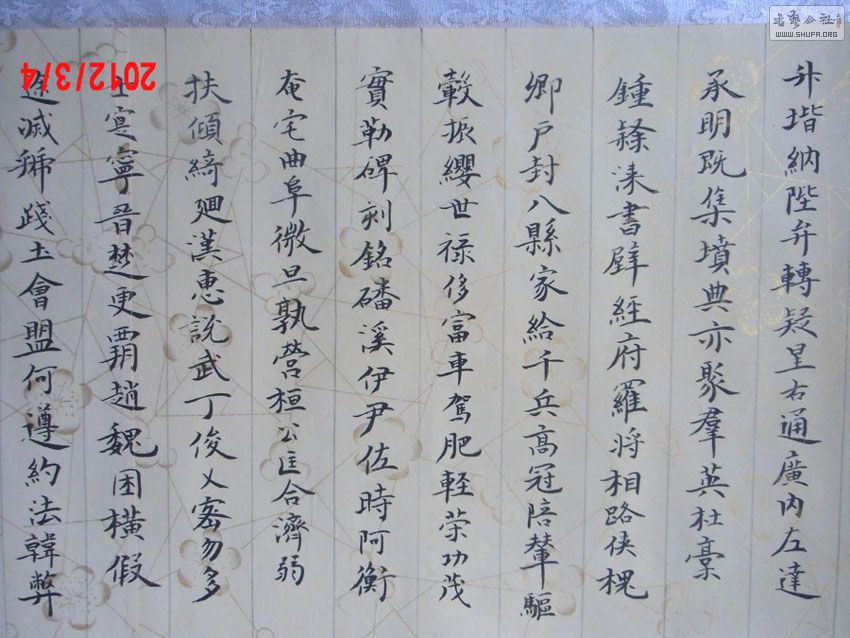 升堦納陛弁轉疑星右通廣内左達
承明既集墳典亦聚羣英杜稾
鍾隸漆書壁經府羅將相路俠槐
卿戶封八縣家給千兵高冠陪輦驅
轂振纓世禄侈富車駕肥輕榮功茂
實勒碑刻銘磻溪伊尹佐時阿衡
奄宅曲阜微旦孰營桓公匡合濟弱
扶傾綺廻漢惠說武丁俊乂密勿多
士寔寧晉楚更霸趙魏困橫假
途滅虢踐土會盟何遵約法韓弊
2012/3/4
WWW.SHUFA.ORG